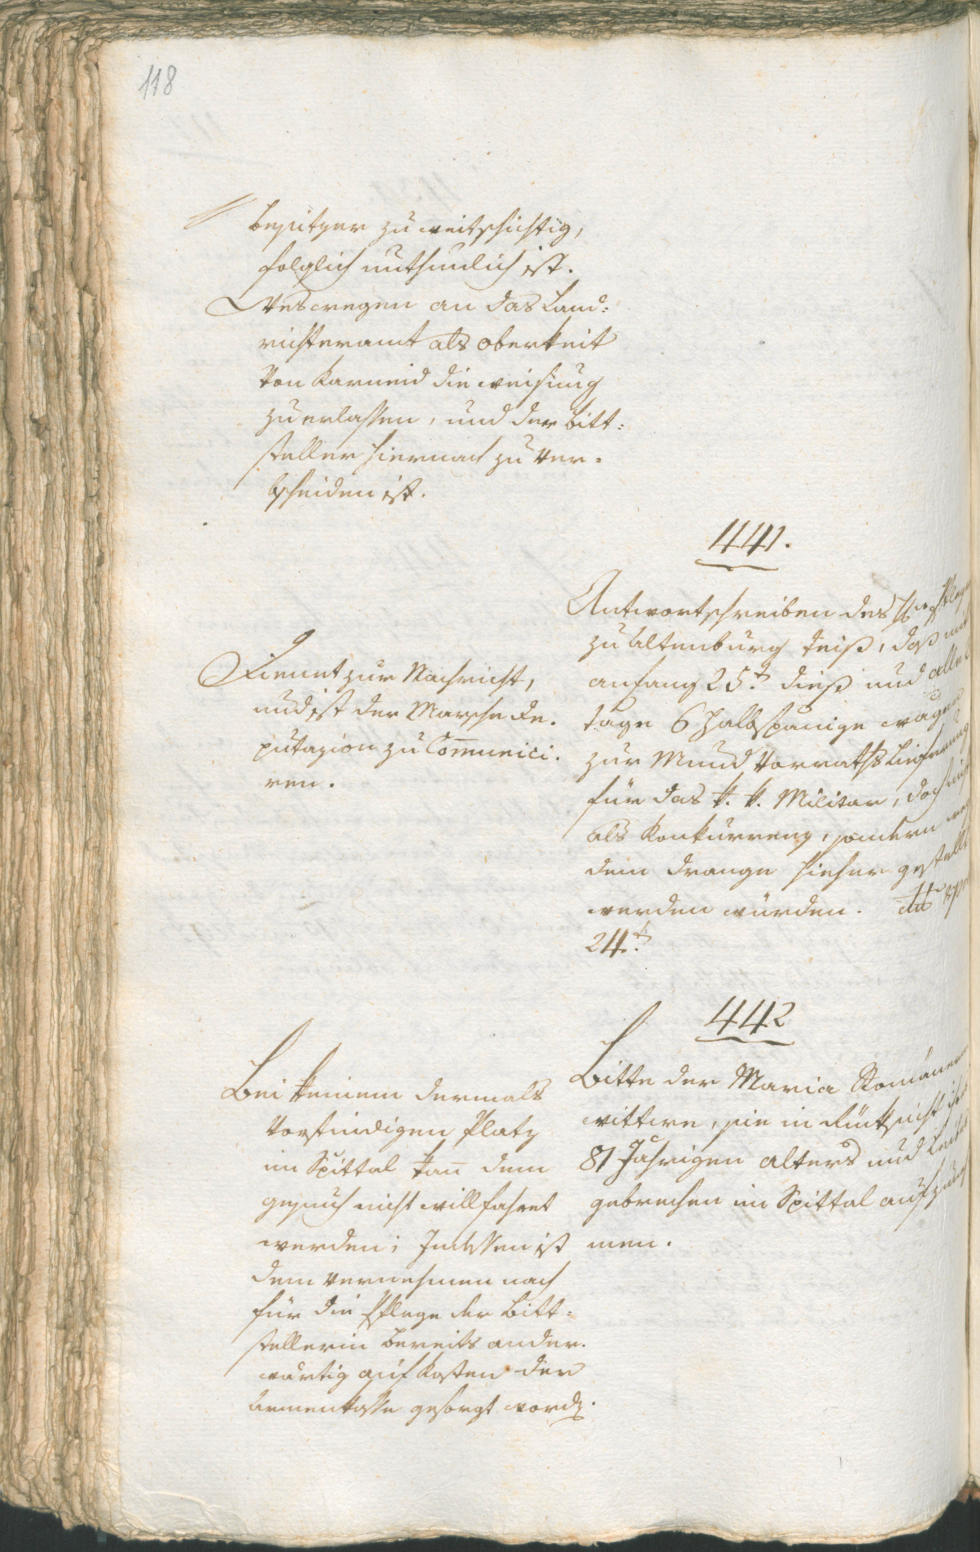 118
besitzer zu weitschichtig,
folglich unthunlich ist.
Weswegen an das Land:
richteramt als Oberkeit
von Karneid die weisung
zu erlassen, und der Bitt:
steller hiernach zu ver-
bscheiden ist.
441.
Antwortschreiben des
zu Altenburg Deiß, daß mit
anfang 25.t dieß und alle
tage 6 halbspänige wägen
zur Mund Vorraths Lieferung
für das k. k. Militar, doch nicht
als Konkurrenz, sondern
dem drange hieher gestellt
werden würden.
24.t
Dienet zur Nachricht,
und ist der Marsche De-
putazion zu Communici-
ren.
442
Bitte der Maria Romäner
wittwe, sie in Rüksicht ihr
81 Jahrigen alters und Leibs
gebrechen im Spittal aufzuneh
men.
Bei keinem dermals
vorfindigen Platz
im Spittal kañ dem
gesuch nicht willfahret
werden; Indessen ist
dem vernehmen nach
für die Pflege der Bitt-
stellerin bereits ander-
wärtig auf Kosten der
Armenkasse gesorgt word.